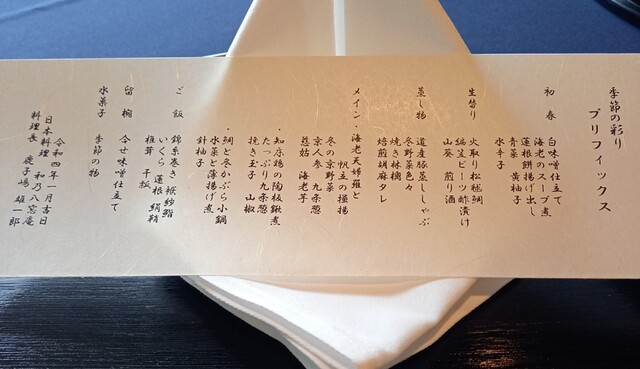 季節の彩り
プリフィックス
初春
白味噌仕立て
海老のスープ煮
蓮根餅揚げ出し
青菜 黄柚子
水辛子
生替り
火取り松笠鯛
編笠ビーツ酢漬け
山葵 煎り酒
蒸し物
道産豚蒸ししゃぶ
冬野菜色々
焼き林檎
焙煎胡麻タレ
メイン・海老天婦羅と
帆立の掻揚
冬の京野菜
京人参 九条葱
慈姑 海老芋
・知床鶏の陶板鍬煮
たっぷり九条葱
挽き玉子 山椒
・鯛と冬かぶら小鍋
水菜と薄揚げ煮
針柚子
ご飯
錦糸巻き 袱紗鮨
いくら 蓮根 絹鞘
椎茸 干瓢
留椀
合せ味噌仕立て
水菓子
季節の物
令和四年一月吉日
日本料理 和乃八窓庵
料理長 鹿子場 雄一郎